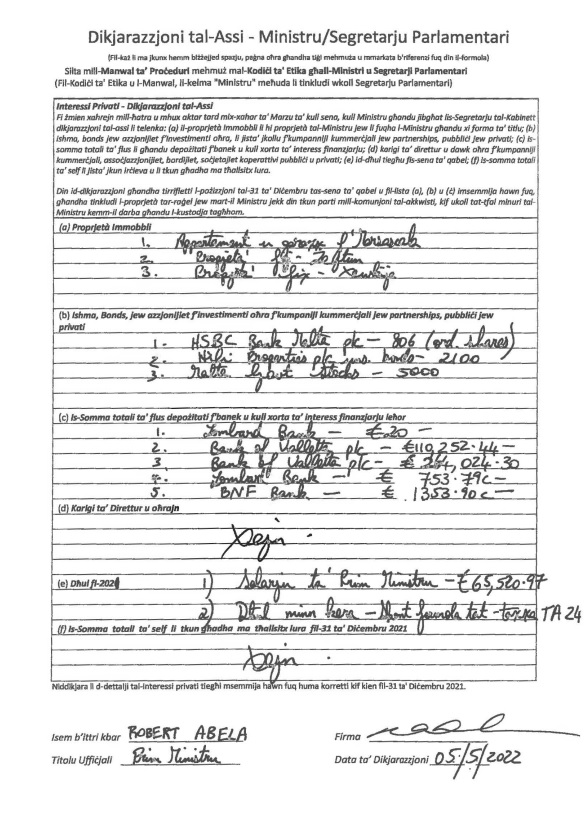 Dikjarazzjoni tal-Assi - Ministru/Segretarju Parlamentari
(Fil-każ li ma jkunx hemm biżżejjed spazju, paġna oħra għandha tiġi mehmuża u mmarkata b'riferenzi fuq din il-formola)
Silta mill-Manwal ta' Proċeduri mehmuż mal-Kodiċi ta' Etika għall-Ministri u Segretarji Parlamentari
(Fil-Kodiċi ta' Etika u l-Manwal, il-keima "Ministru" meħuda li tinkludi wkoll Segretarju Parlamentari)
Interessi Privati - Dikjarazzjoni tal-Assi
Fi żmien xahrejn mill-ħatra u mhux aktar tard mix-xahar ta' Marzu ta' kull sena, kull Ministru għandu jibgħat lis-Segretarju tal-Kabinett
dikjarazzjoni tal-assi li telenka: (a) il-proprjetà immobbli li hi proprjetà tal-Ministru jew li fuqha l-Ministru għandu xi forma ta' titlu; (b)
ishma, bonds jew azzjonijiet f'investimenti oħra, li jista' jkollu f'kumpanniji kummerċjali jew partnerships, pubbliċi jew privati; (c) is-
somma totali ta' flus li għandu depożitati f'banek u kull xorta ta' interess finanzjarju ieħor; (d) karigi ta' direttur u dawk oħra f'kumpanniji
kummerċjali, assoċjazzjonijiet, bordijiet, soċjetajiet koperattivi pubbliċi u privati; (e) id-dħul tiegħu fis-sena ta' qabel; (f) is-somma totali
ta' self li jista' jkun irċieva u li tkun għadha ma tħallsitx lura.
Din id-dikjarazzjoni għandha tirrifletti l-pożizzjoni tal-31 ta' Diċembru tas-sena ta' qabel u fil-lista (a), (b) u (ċ) imsemmija hawn fuq,
għandha tinkludi l-proprjetà tar-raġel jew mart il-Ministru jekk din tkun parti mill-komunjoni tal-akkwisti, kif ukoll tat-tfal minuri tal-
Ministru kemm-il darba għandu l-kustodja tagħhom.
(a) Proprjetà Immobbli
1. Appartament u garaxx f'Marsascala
2. Proprjetà fiż-Żejtun
3. Proprjetà fix-Xewkija
(b) Ishma, Bonds, jew azzjonijiet f'investimenti oħra f'kumpaniji kummerċjali jew partnerships, pubbliċi jew
privati
1. HSBC Bank Malta plc - 806 (ord. shares)
2. Properties plc bonds - 2100
3. Malta Govt Stocks - 5000
(c) Is-Somma totali ta' flus depożitati f'banek u kull xorta ta' interess finanzjarju ieħor
1. Lombard Bank - €20 -
2. Bank of Valletta plc - €110,252.44 -
3. Bank of Valletta plc - € ,024.30
4. Lombard Bank - € 753.79c -
5. BNF Bank - € 1353.90c -
(d) Karigi ta' Direttur u oħrajn
Xejn.
(e) Dħul fl-2021 1) Salarju ta' Prim Ministru - €65,520.97
2) Dħul minn kera - tat-taxxa TA 24
(f) Is-Somma totali ta' self li tkun għadha ma tħallsitx lura fil-31 ta' Diċembru 2021
Xejn.
Niddikjara li d-dettalji tal-interessi privati tiegħi msemmija hawn fuq huma korretti kif kien fil-31 ta' Diċembru 2021.
Isem b'ittri kbar ROBERT ABELA Firma
Titolu Uffiċjali Prim Ministru Data ta' Dikjarazzjoni 05/5/2022